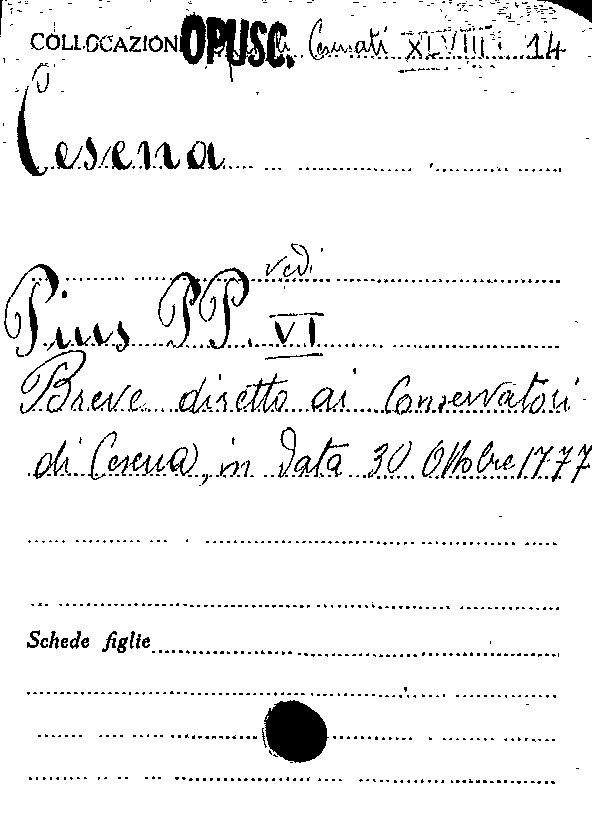 COLLOCAZIONE OPUSC. Cesenati XLVIII. 14
Cesena
vedi
Pius PP. VI
Breve diretto ai Conservatori
di Cesena, in data 30 Ottobre 1777
Schede figlie